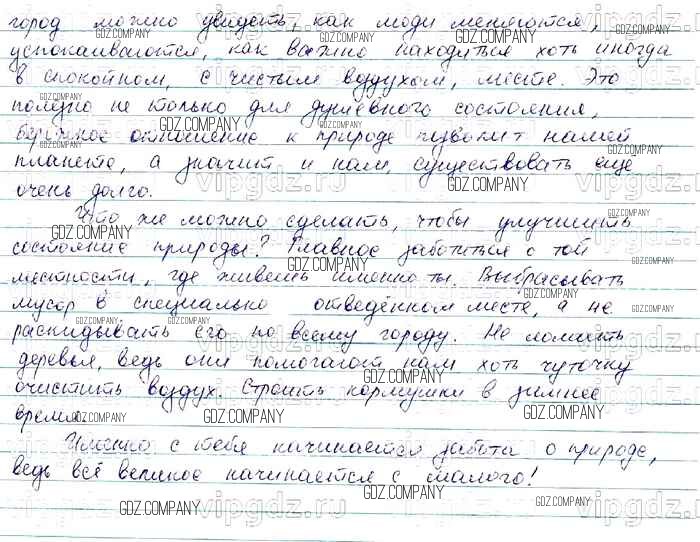 город можно увидеть, как люди меняются,
успокаиваются, как важно находиться хоть иногда
в спокойном, с чистым воздухом, месте. Это
полезно не только для душевного состояния,
бережное отношение к природе позволит нашей
планете, а значит и нам, существовать ещё
очень долго.
Что же можно сделать, чтобы улучшить
состояние природы? Главное заботиться о той
местности, где живешь именно ты. Выбрасывать
мусор в специально отведённом месте, а не
раскидывать его по всему городу. Не ломать
деревья, ведь они помогают нам хоть чуточку
очистить воздух. Строить кормушки в зимнее
время.
Именно с тебя начинается забота о природе,
ведь всё великое начинается с малого!
GDZ.COMPANY
vipgdz.ru